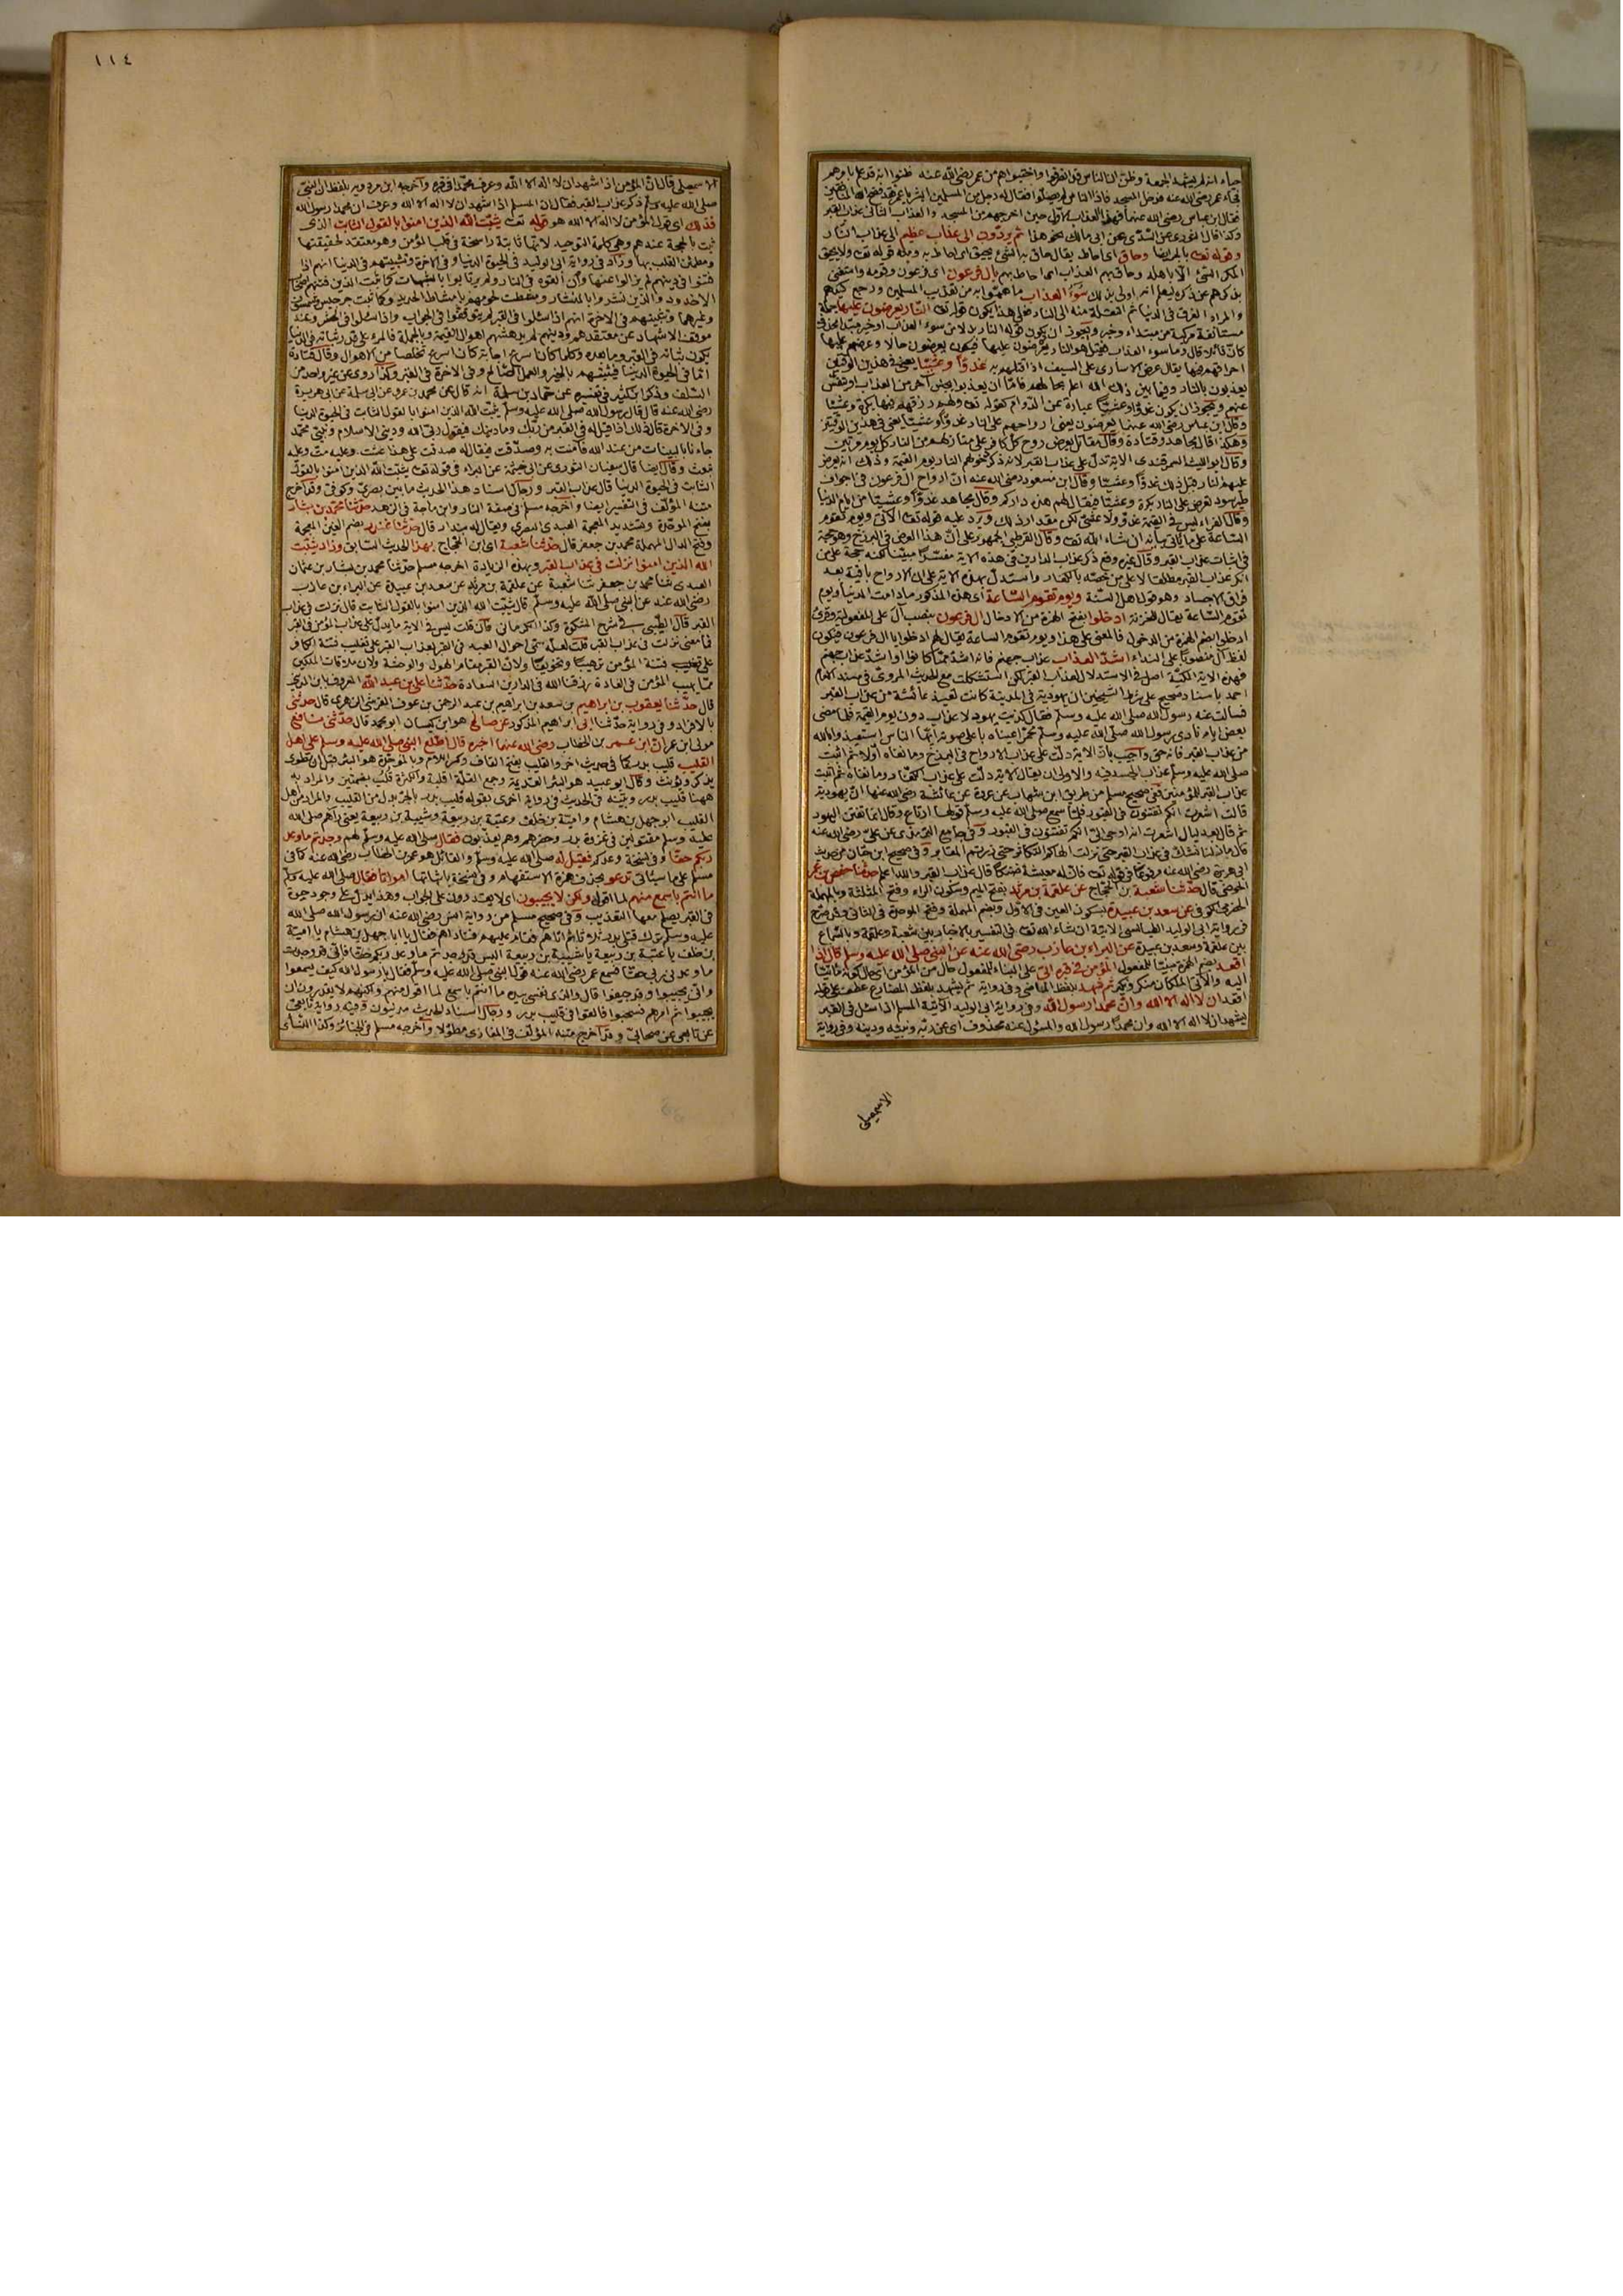 حياء انه لم يشهد الجمعة وظن ان الناس قد انصرفوا واختبؤا هم من عمر رضي الله عنه ظنوا انه قد علم بامرهم
فجاء عمر رضي الله عنه فدخل المسجد فاذا الناس لم يصلوا فقال له رجل من المسلمين ابشر يا عمر فقد فضح الله المنافقين
فقال ابن عباس رضي الله عنهما فهذا العذاب الاول حين اخرجهم من المسجد والعذاب الثاني عذاب القبر
وكذا قال الثوري عن السدي عن ابي مالك نحو هذا ثم يردون الى عذاب عظيم الى عذاب النار
وقوله تعالى بالجر ايضا وحاق اي احاط يقال حاق به الشيء يحيق اي احاط به ومنه قوله تعالى ولا يحيق
المكر السيئ الا باهله وحاق بهم العذاب اي احاط بهم بآل فرعون اي فرعون وقومه واستغنى
بذكرهم عن ذكره ليعلم انه اولى بذلك سوء العذاب
والمراد الغرق في الدنيا ثم النقلة منه الى النار فعلى هذا يكون قوله تعالى النار يعرضون عليها جملة
مستأنفة مركبة من مبتداء وخبر ويجوز ان يكون قوله النار بدلا من سوء العذاب او خبر مبتدأ محذوف
كان قائلا قال وما سوء العذاب فقيل هو النار يعرضون عليها فيكون يعرضون حالا وعرضهم عليها
احراقهم بها يقال عرض الاسارى على السيف اذا قتلهم به غدوا وعشيا يعني في هذين الوقتين
يعذبون بالنار وفيما بين ذلك الله اعلم بحالهم فاما ان يعذبوا بجنس آخر من العذاب او ينفس
عنهم ويجوز ان يكون غدوا وعشيا عبارة عن الدوام كقوله تعالى ولهم رزقهم فيها بكرة وعشيا
وقال ابن عباس رضي الله عنهما يعرضون يعني ارواحهم على النار غدوا وعشيا يعني في هذين الوقتين
وهكذا قال مجاهد وقتادة وقال مقاتل يعرض روح كل كافر على منازلهم من النار كل يوم مرتين
وقال ابو الليث السمرقندي الآية تدل على عذاب القبر لانه ذكر دخولهم النار يوم القيمة وذلك انه يعرض
عليهم النار قبل ذلك غدوا وعشيا وقال ابن مسعود رضي الله عنه ان ارواح آل فرعون في اجواف
طير سود تعرض على النار بكرة وعشيا فيقال لهم هذه داركم وقال مجاهد غدوا وعشيا من ايام الدنيا
وقال الفراء ليس في القيمة غدو ولا عشي لكن مقدار ذلك ويرد عليه قوله تعالى الآتي ويوم تقوم
الساعة على ما يأتي بيانه ان شاء الله تعالى وقال القرطبي الجمهور على ان هذا العرض في البرزخ وهو حجة
في اثبات عذاب القبر وقال غيره وقع ذكر عذاب الدارين في هذه الآية مفسرا مبينا لكنه حجة على من
انكر عذاب القبر مطلقا لا على من خصه بالكفار واستدل بهذه الآية على ان الارواح باقية بعد
فراق الاجساد وهو قول اهل السنة ويوم تقوم الساعة اي هذا المذكور ما دامت الدنيا ويوم
تقوم الساعة يقال للخزنة ادخلوا بفتح الهمزة من الادخال آل فرعون بنصب آل على المفعولية وقرئ
ادخلوا بضم الهمزة من الدخول فالمعنى على هذا ويوم تقوم الساعة يقال لهم ادخلوا يا آل فرعون فيكون
لفظ آل منصوبا على النداء اشد العذاب عذاب جهنم فانه اشد مما كانوا او اشد عذاب جهنم
فهذه الآية المكية اصل في الاستدلال لعذاب القبر لكن استشكلت مع الحديث المروي في مسند الامام
احمد باسناد صحيح على شرط الشيخين ان يهودية في المدينة كانت تعيذ عائشة من عذاب القبر
فسألت عنه رسول الله صلى الله عليه وسلم فقال كذبت يهود لا عذاب دون يوم القيمة فلما مضى
بعض ايام نادى رسول الله صلى الله عليه وسلم محمرا عيناه باعلى صوته ايها الناس استعيذوا بالله
من عذاب القبر فانه حق واجيب بان الآية دلت على عذاب الارواح في البرزخ وما نفاه اولا ثم اثبت
صلى الله عليه وسلم عذاب الجسد فيه والاولى ان يقال الآية دلت على عذاب الكفار وما نفاه ثم اثبت
عذاب القبر للمؤمنين ففي صحيح مسلم من طريق ابن شهاب عن عروة عن عائشة رضي الله عنها ان يهودية
قالت اشعرت انكم تفتنون في القبور فلما سمع صلى الله عليه وسلم قولها ارتاع وقال انما تفتن اليهود
ثم قال بعد ليال اشعرت انه اوحي الي انكم تفتنون في القبور وفي جامع الترمذي عن علي رضي الله عنه
قال ما زلنا نشك في عذاب القبر حتى نزلت الهاكم التكاثر حتى زرتم المقابر وفي صحيح ابن حبان من حديث
ابي هريرة رضي الله عنه مرفوعا في قوله تعالى فان له معيشة ضنكا قال عذاب القبر والله اعلم حدثنا حفص بن عمر
الحوضي قال حدثنا شعبة بن الحجاج عن علقمة بن مرثد بفتح الميم وسكون الراء وفتح المثلثة وبالمهملة
الحضرمي الكوفي عن سعد بن عبيدة بسكون العين في الاول وبضم المهملة وفتح الموحدة في الثاني وقد صرح
في رواية ابي الوليد الطيالسي الآتية ان شاء الله تعالى في التفسير بالاخبار بين شعبة وعلقمة وبالسماع
بين علقمة وسعد بن عبيدة عن البراء بن عازب رضي الله عنه عن النبي صلى الله عليه وسلم قال اذا
اقعد بضم الهمزة مبنيا للمفعول المؤمن في قبره اتي على البناء للمفعول حال من المؤمن اي حال كونه مأتيا
اليه والآتي الملكان منكر ونكير ثم شهد بلفظ الماضي وفي رواية ثم يشهد بلفظ المضارع عطف على قوله
اقعد ان لا اله الا الله وان محمدا رسول الله وفي رواية ابي الوليد الآتية المسلم اذا سئل في القبر
يشهد ان لا اله الا الله وان محمدا رسول الله والمسئول عنه محذوف اي عن ربه ونبيه ودينه وفي رواية
الاسمعيلي
١١٤
الاسمعيلي قال ان المؤمن اذا شهد ان لا اله الا الله وعرف محمدا في قبره واخرجه ابن مردويه بلفظ ان النبي
صلى الله عليه وسلم ذكر عذاب القبر فقال ان المسلم اذا شهد ان لا اله الا الله وعرف ان محمدا رسول الله
فذلك اي قول المؤمن لا اله الا الله هو قوله تعالى يثبت الله الذين امنوا بالقول الثابت الذي
ثبت بالحجة عندهم وهي كلمة التوحيد لانها ثابتة راسخة في قلب المؤمن وهو معتقد لحقيقتها
ومطمئن القلب بها وزاد في رواية ابي الوليد في الحيوة الدنيا وفي الآخرة وتثبيتهم في الدنيا انهم اذا
فتنوا في دينهم لم يزالوا عنها وان القوا في النار ولم يرتابوا بالشبهات كما ثبت الذين فتنهم اصحاب
الاخدود والذين نشروا بالمنشار ومشطت لحومهم بامشاط الحديد وكما ثبت جرجيس وشمسون
وغيرهما وتثبيتهم في الآخرة انهم اذا سئلوا في القبر لم يتوقفوا في الجواب واذا سئلوا في الحشر وعند
موقف الاشهاد عن معتقدهم ودينهم لم يدهشهم اهوال القيمة وبالجملة فالمرء على قدر ثباته في الدنيا
يكون ثباته في القبر وما بعده وكلما كان اسرع اجابة كان اسرع تخلصا من الاهوال وقال قتادة
اما في الحيوة الدنيا فيثبتهم بالخير والعمل الصالح وفي الآخرة في القبر وكذا روي عن غير واحد من
السلف وذكر ابن كثير في تفسيره عن حماد بن سلمة انه قال عن محمد بن عمرو عن ابي سلمة عن ابي هريرة
رضي الله عنه قال قال رسول الله صلى الله عليه وسلم يثبت الله الذين امنوا بالقول الثابت في الحيوة الدنيا
وفي الآخرة قال ذلك اذا قيل له في القبر من ربك وما دينك فيقول ربي الله وديني الاسلام ونبيي محمد
جاءنا بالبينات من عند الله فآمنت به وصدقت فيقال له صدقت على هذا عشت وعليه مت وعليه
تبعث وقال ايضا قال سفيان الثوري عن ابي خيثمة عن البراء في قوله تعالى يثبت الله الذين امنوا بالقول
الثابت في الحيوة الدنيا قال عذاب القبر ورجال اسناد هذا الحديث ما بين بصري وكوفي وقد اخرج
متنه المؤلف في التفسير ايضا واخرجه مسلم في صفة النار وابن ماجة في الزهد حدثنا محمد بن بشار
بفتح الموحدة وتشديد المعجمة العبدي البصري ويقال له بندار قال حدثنا غندر بضم الغين المعجمة
وفتح الدال المهملة محمد بن جعفر قال حدثنا شعبة اي ابن الحجاج بهذا الحديث السابق وزاد يثبت
الله الذين امنوا نزلت في عذاب القبر وبهذه الزيادة اخرجه مسلم حدثنا محمد بن بشار بن عثمان
العبدي ثنا محمد بن جعفر ثنا شعبة عن علقمة بن مرثد عن سعد بن عبيدة عن البراء بن عازب
رضي الله عنه عن النبي صلى الله عليه وسلم قال يثبت الله الذين امنوا بالقول الثابت قال نزلت في عذاب
القبر قال الطيبي في شرح المشكوة وكذا الكرماني فان قلت ليس في الآية ما يدل على عذاب المؤمن في القبر
فما معنى نزلت في عذاب القبر قلت لعله سمى احوال العبد في القبر بعذاب القبر على تغليب فتنة الكافر
على فتنة المؤمن ترهيبا وتخويفا ولان القبر مقام الهول والوحشة ولان ملاقات الملكين
مما يهيب المؤمن في العادة رزقنا الله في الدارين السعادة حدثنا علي بن عبد الله المعروف بابن المديني
قال حدثنا يعقوب بن ابراهيم بن سعد بن ابراهيم بن عبد الرحمن بن عوف القرشي الزهري قال حدثني
بالافراد وفي رواية حدثنا ابي ابراهيم المذكور عن صالح هو ابن كيسان ابو محمد قال حدثني نافع
مولى ابن عمر ان ابن عمر بن الخطاب رضي الله عنهما اخبره قال اطلع النبي صلى الله عليه وسلم على اهل
القليب قليب بدر كما في حديث اخر والقليب بفتح القاف وكسر اللام وبالموحدة هو البئر قبل ان تطوى
يذكر ويؤنث وقال ابو عبيد هو البئر القديمة وجمع القلة اقلبة والكثرة قلب بضمتين والمراد به
ههنا قليب بدر وبينه في الحديث في رواية اخرى بقوله قليب بدر بالجر بدل من القليب والمراد من اهل
القليب ابو جهل بن هشام وامية بن خلف وعتبة بن ربيعة وشيبة بن ربيعة يعني رآهم صلى الله
عليه وسلم مقتولين في غزوة بدر وحضرهم وهم يعذبون فقال صلى الله عليه وسلم لهم وجدتم ما وعد
ربكم حقا وفي نسخة وعدكم فقيل له صلى الله عليه وسلم والقائل هو عمر بن الخطاب رضي الله عنه كما في
مسلم على ما سيأتي تدعو بحذف همزة الاستفهام وفي نسخة باثباتها امواتا فقال صلى الله عليه وسلم
ما انتم باسمع منهم لما اقول ولكن لا يجيبون اي لا يقتدرون على الجواب وهذا يدل على وجود حيوة
في القبر يصلح معها التعذيب وفي صحيح مسلم من رواية انس رضي الله عنه ان رسول الله صلى الله
عليه وسلم ترك قتلى بدر ثلاثا ثم اتاهم فقام عليهم فناداهم فقال يا ابا جهل بن هشام يا امية
بن خلف يا عتبة بن ربيعة يا شيبة بن ربيعة اليس قد وجدتم ما وعد ربكم حقا فاني قد وجدت
ما وعدني ربي حقا فسمع عمر رضي الله عنه قول النبي صلى الله عليه وسلم فقال يا رسول الله كيف يسمعوا
واني يجيبوا وقد جيفوا قال والذي نفسي بيده ما انتم باسمع لما اقول منهم ولكنهم لا يقدرون ان
يجيبوا ثم امر بهم فسحبوا فالقوا في قليب بدر ورجال اسناد الحديث مدنيون وفيه رواية تابعي
عن تابعي عن صحابي وقد اخرج متنه المؤلف في المغازي مطولا واخرجه مسلم في الجنائز وكذا النسائي